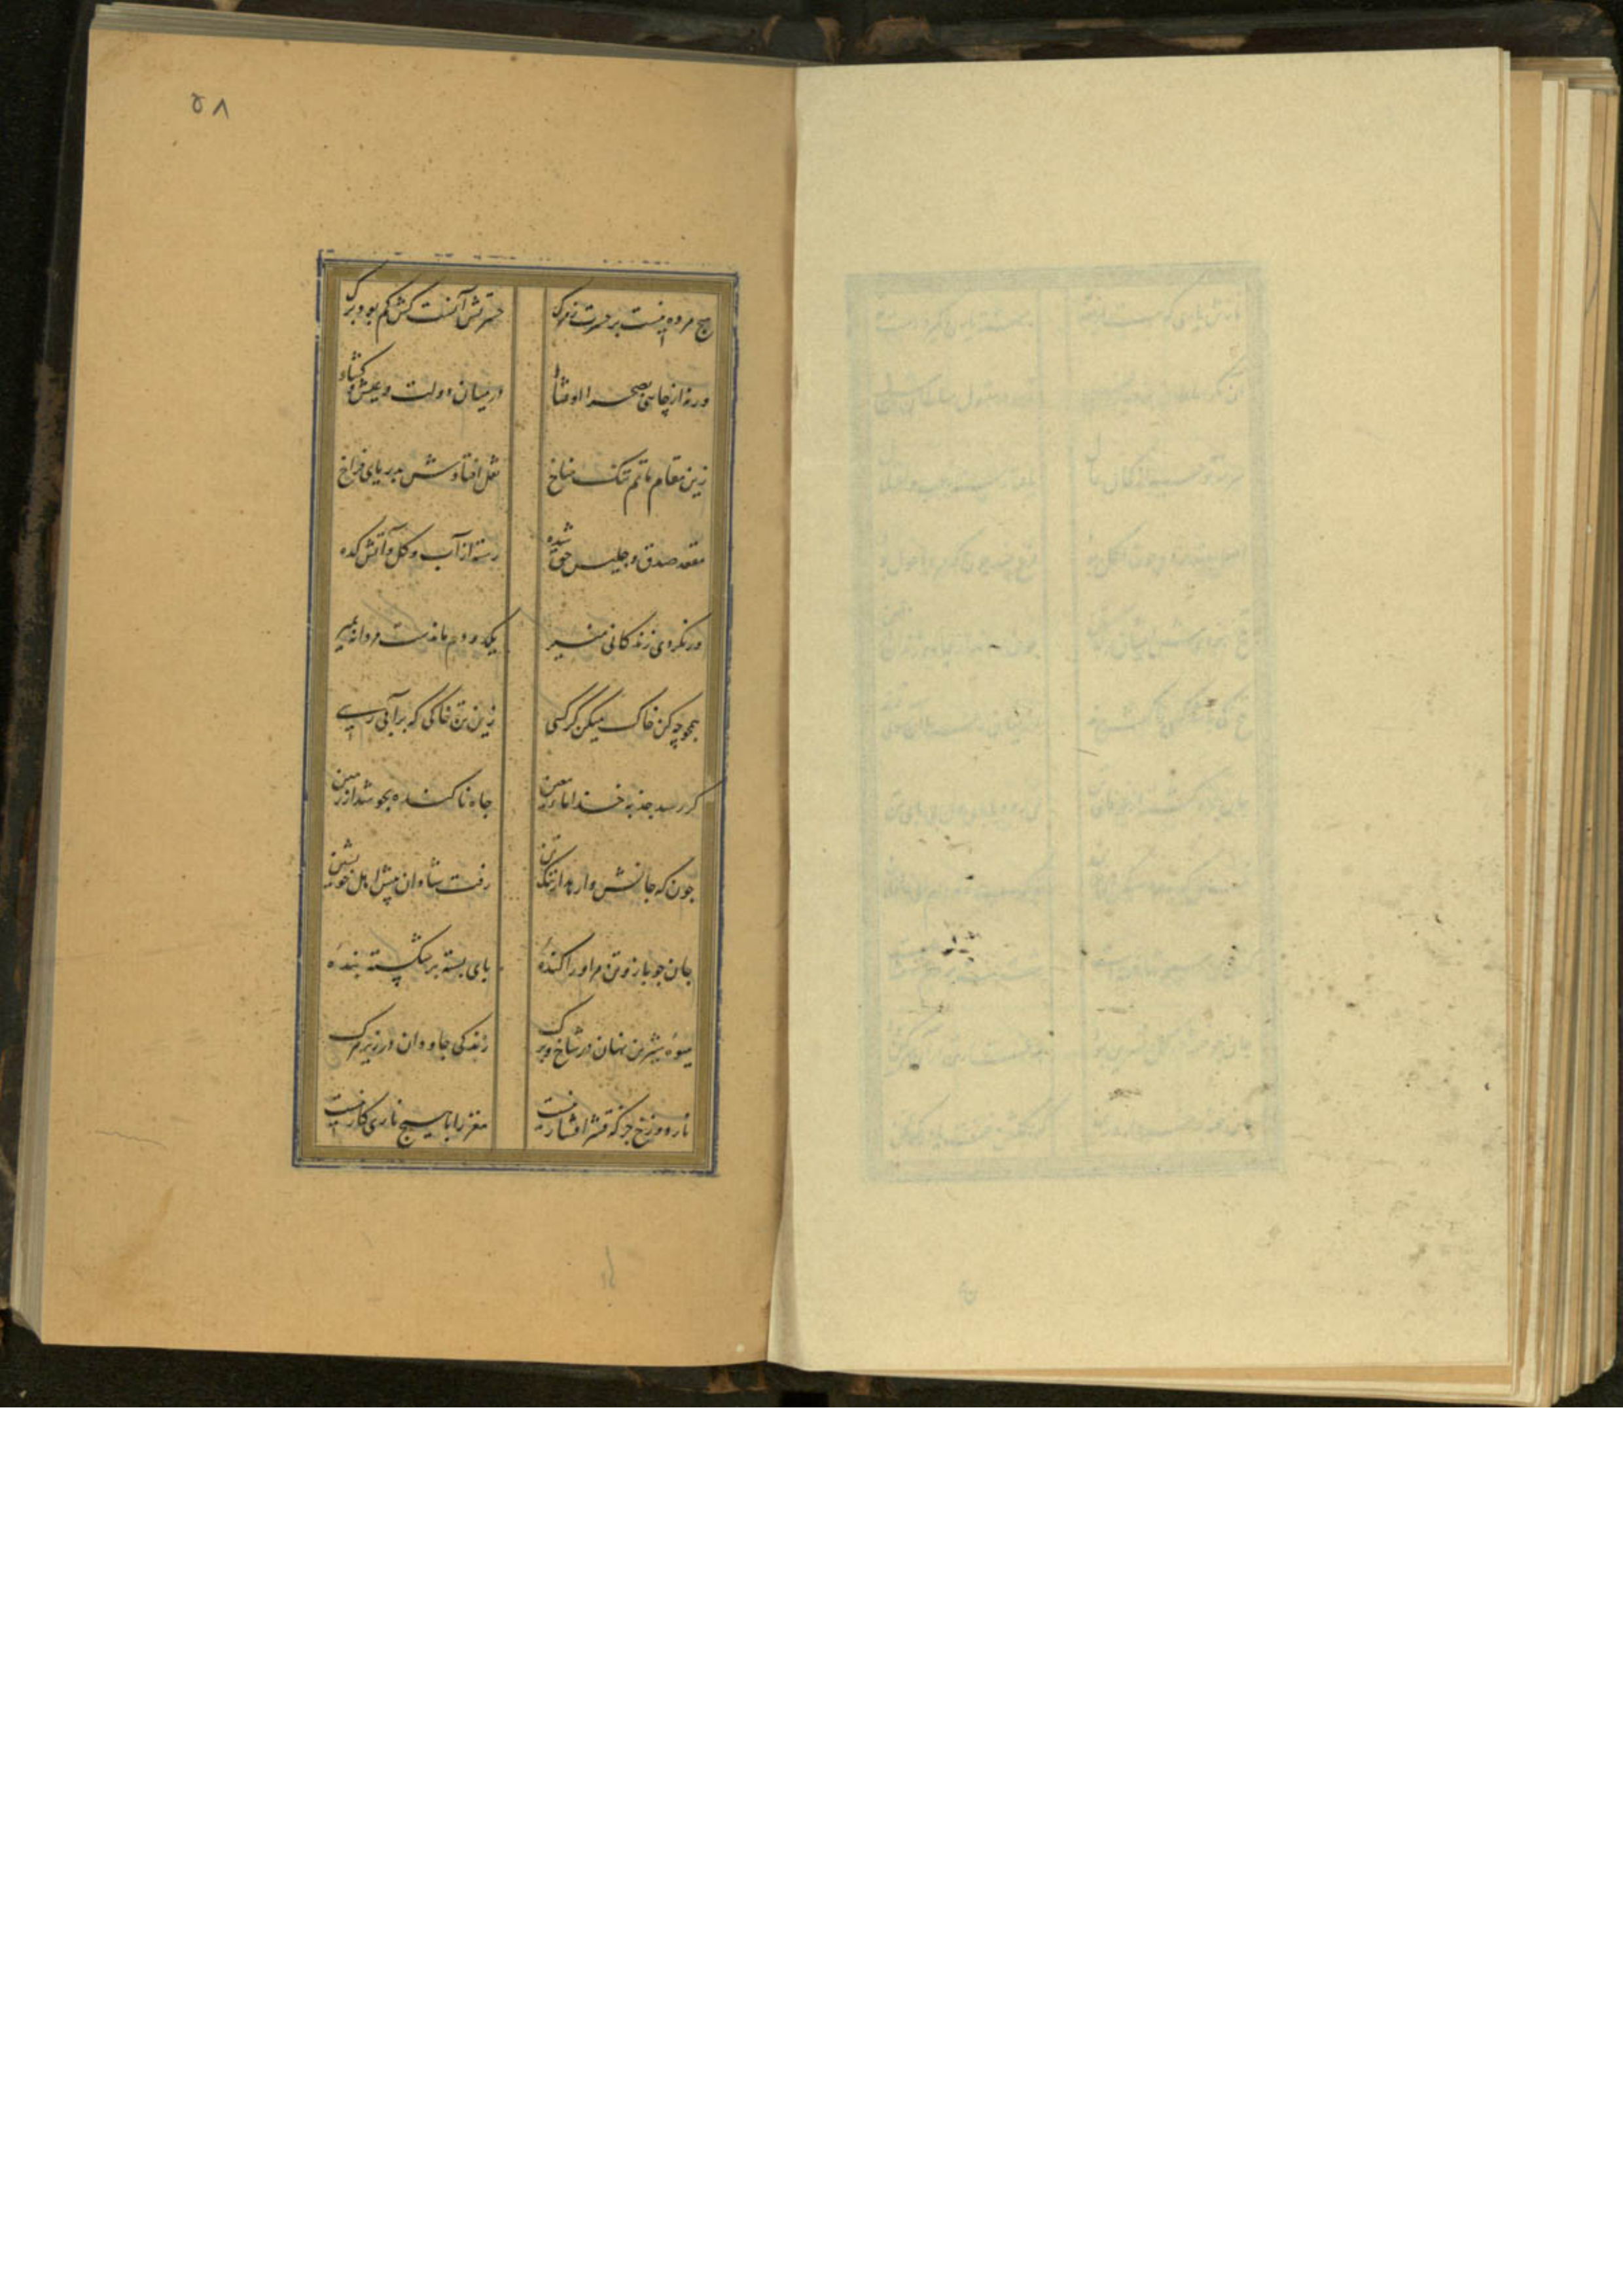 ۵۸
هیچ مرده نیست پر حسرت ز مرک حسرتش آنست کش کم بود برک
ورنه از چاهی بصحرا اوفتاد در میان دولت و عیش و کشاد
زین مقام ماتم تنک مناخ نقل افتادش بدریای فراخ
مقعد صدق و جلیس حق شده رسته از آب و کل و آتش کده
ور نکردی زندکانی منیر یکدو دم ماندست مردانه بمیر
بجو چه کن خاک میکن کر کسی زین تن خاکی که بر آبی رسی
کر رسد جذبه خدا ماء معین چاه ناکنده بجوشد از زمین
چون که جانش وارهد از ننک تن رفت شادان پیش اهل خویشتن
جان چو باز و تن مر او را کندهٔ پای بسته پر شکسته بندهٔ
میوهٔ شیرین نهان در شاخ و برک زندکی جاودان در زیر مرک
نار دوزخ جز که قشر افشار نیست مغز را با هیچ ناری کار نیست